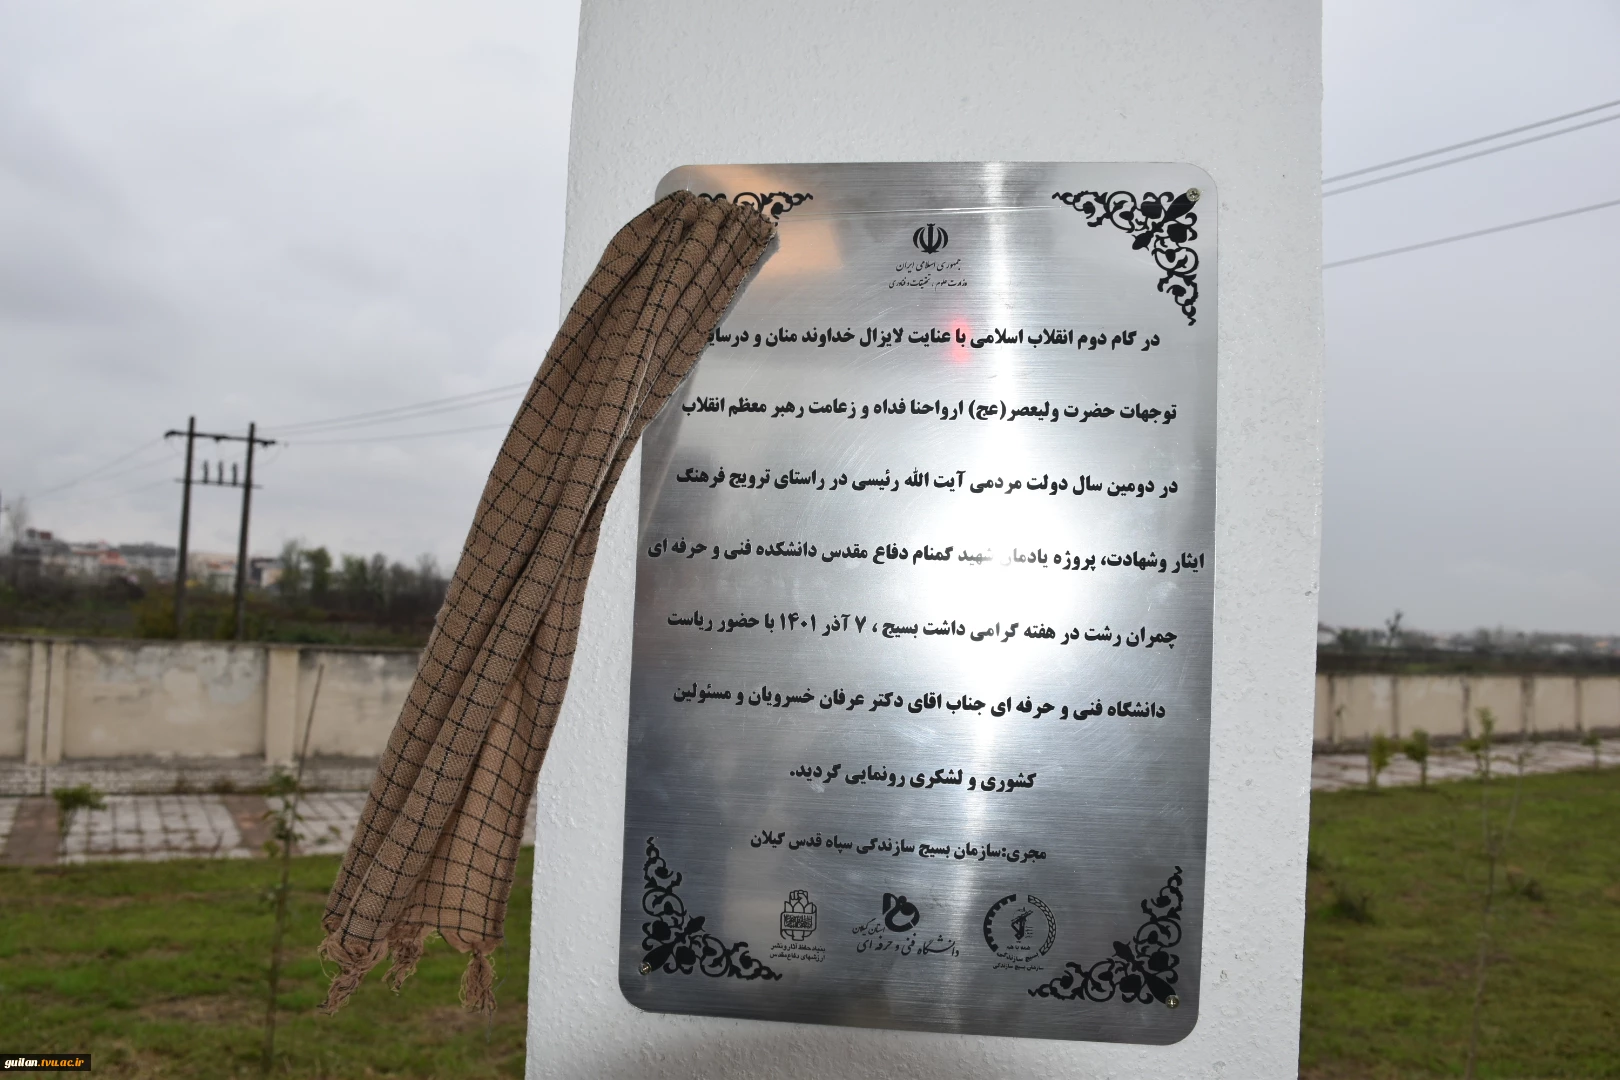 جمهوری اسلامی ایران
وزارت علوم ، تحقیقات و فناوری
در گام دوم انقلاب اسلامی با عنایت لایزال خداوند منان و درسای
توجهات حضرت ولیعصر(عج) ارواحنا فداه و زعامت رهبر معظم انقلاب
در دومین سال دولت مردمی آیت الله رئیسی در راستای ترویج فرهنگ
ایثار وشهادت، پروژه یادمان شهید گمنام دفاع مقدس دانشکده فنی و حرفه ای
چمران رشت در هفته گرامی داشت بسیج ، ۷ آذر ۱۴۰۱ با حضور ریاست
دانشگاه فنی و حرفه ای جناب اقای دکتر عرفان خسرویان و مسئولین
کشوری و لشکری رونمایی گردید.
مجری:سازمان بسیج سازندگی سپاه قدس گیلان
همه با هم
بسیج سازندگی
سازمان بسیج سازندگی
استان گیلان
دانشگاه فنی و حرفه ای
بنیاد حفظ آثار و نشر
ارزشهای دفاع مقدس
guilan.tvu.ac.ir